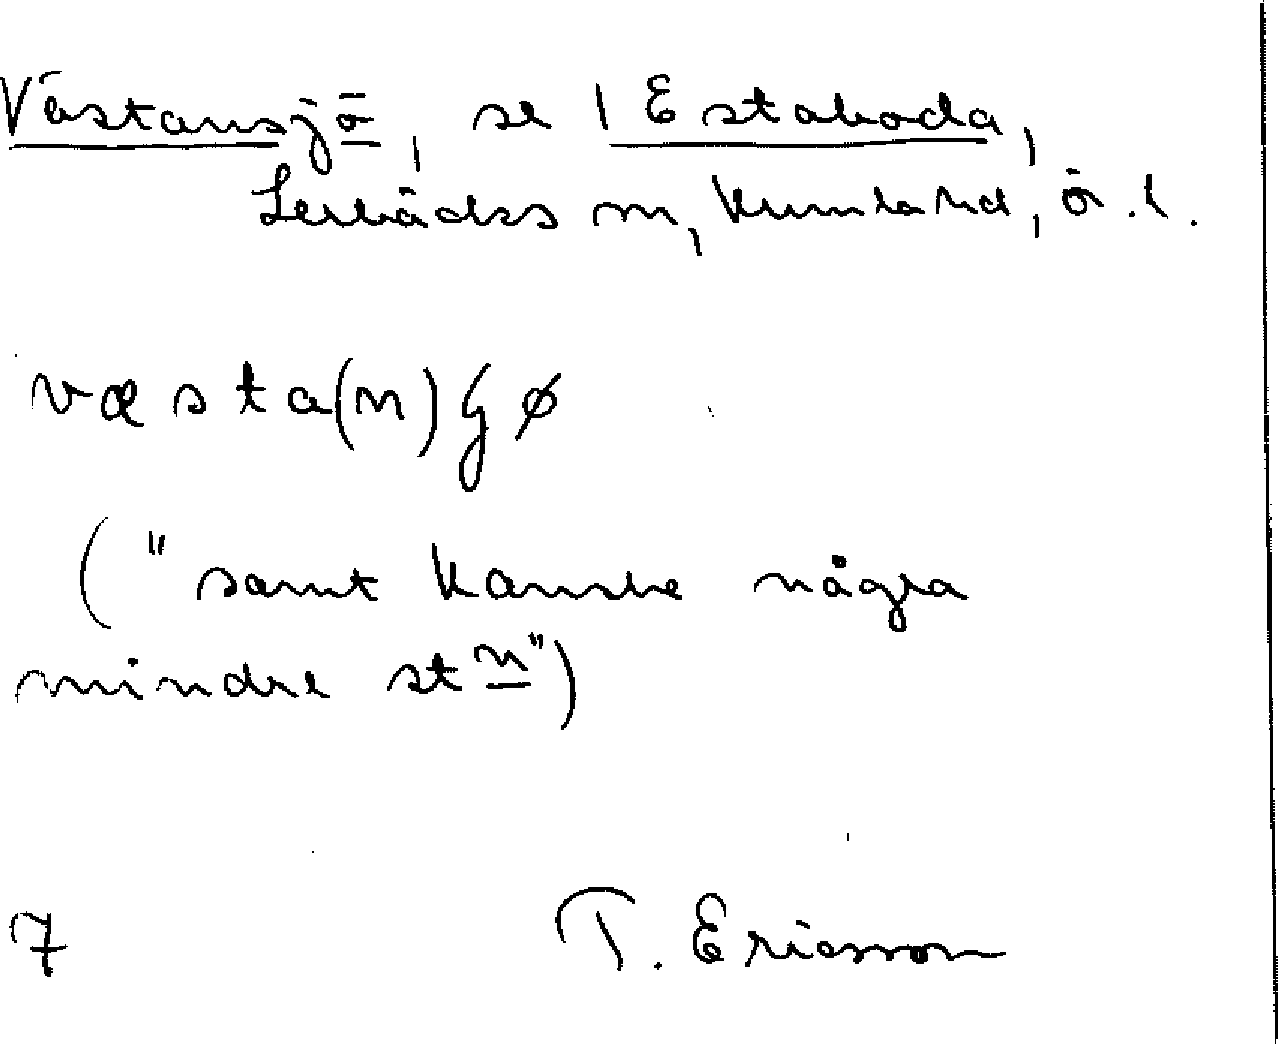 Västansjö, se 1 Estaboda,
Lerbäcks sn, Kumla hd, ör. l.
væsta(n)ʃø
("samt kanske några
mindre stn")
7 T. Ericsson